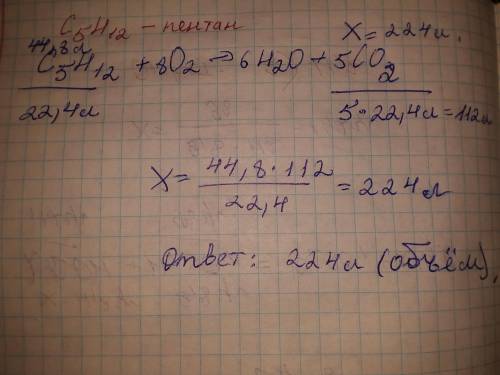 C₅H₁₂ - пентан
44,8 л X = 224 л.
C₅H₁₂ + 8O₂ → 6H₂O + 5CO₂
22,4 л 5·22,4 л = 112 л
X = 44,8·112 / 22,4 = 224 л
Ответ: 224 л (объём).